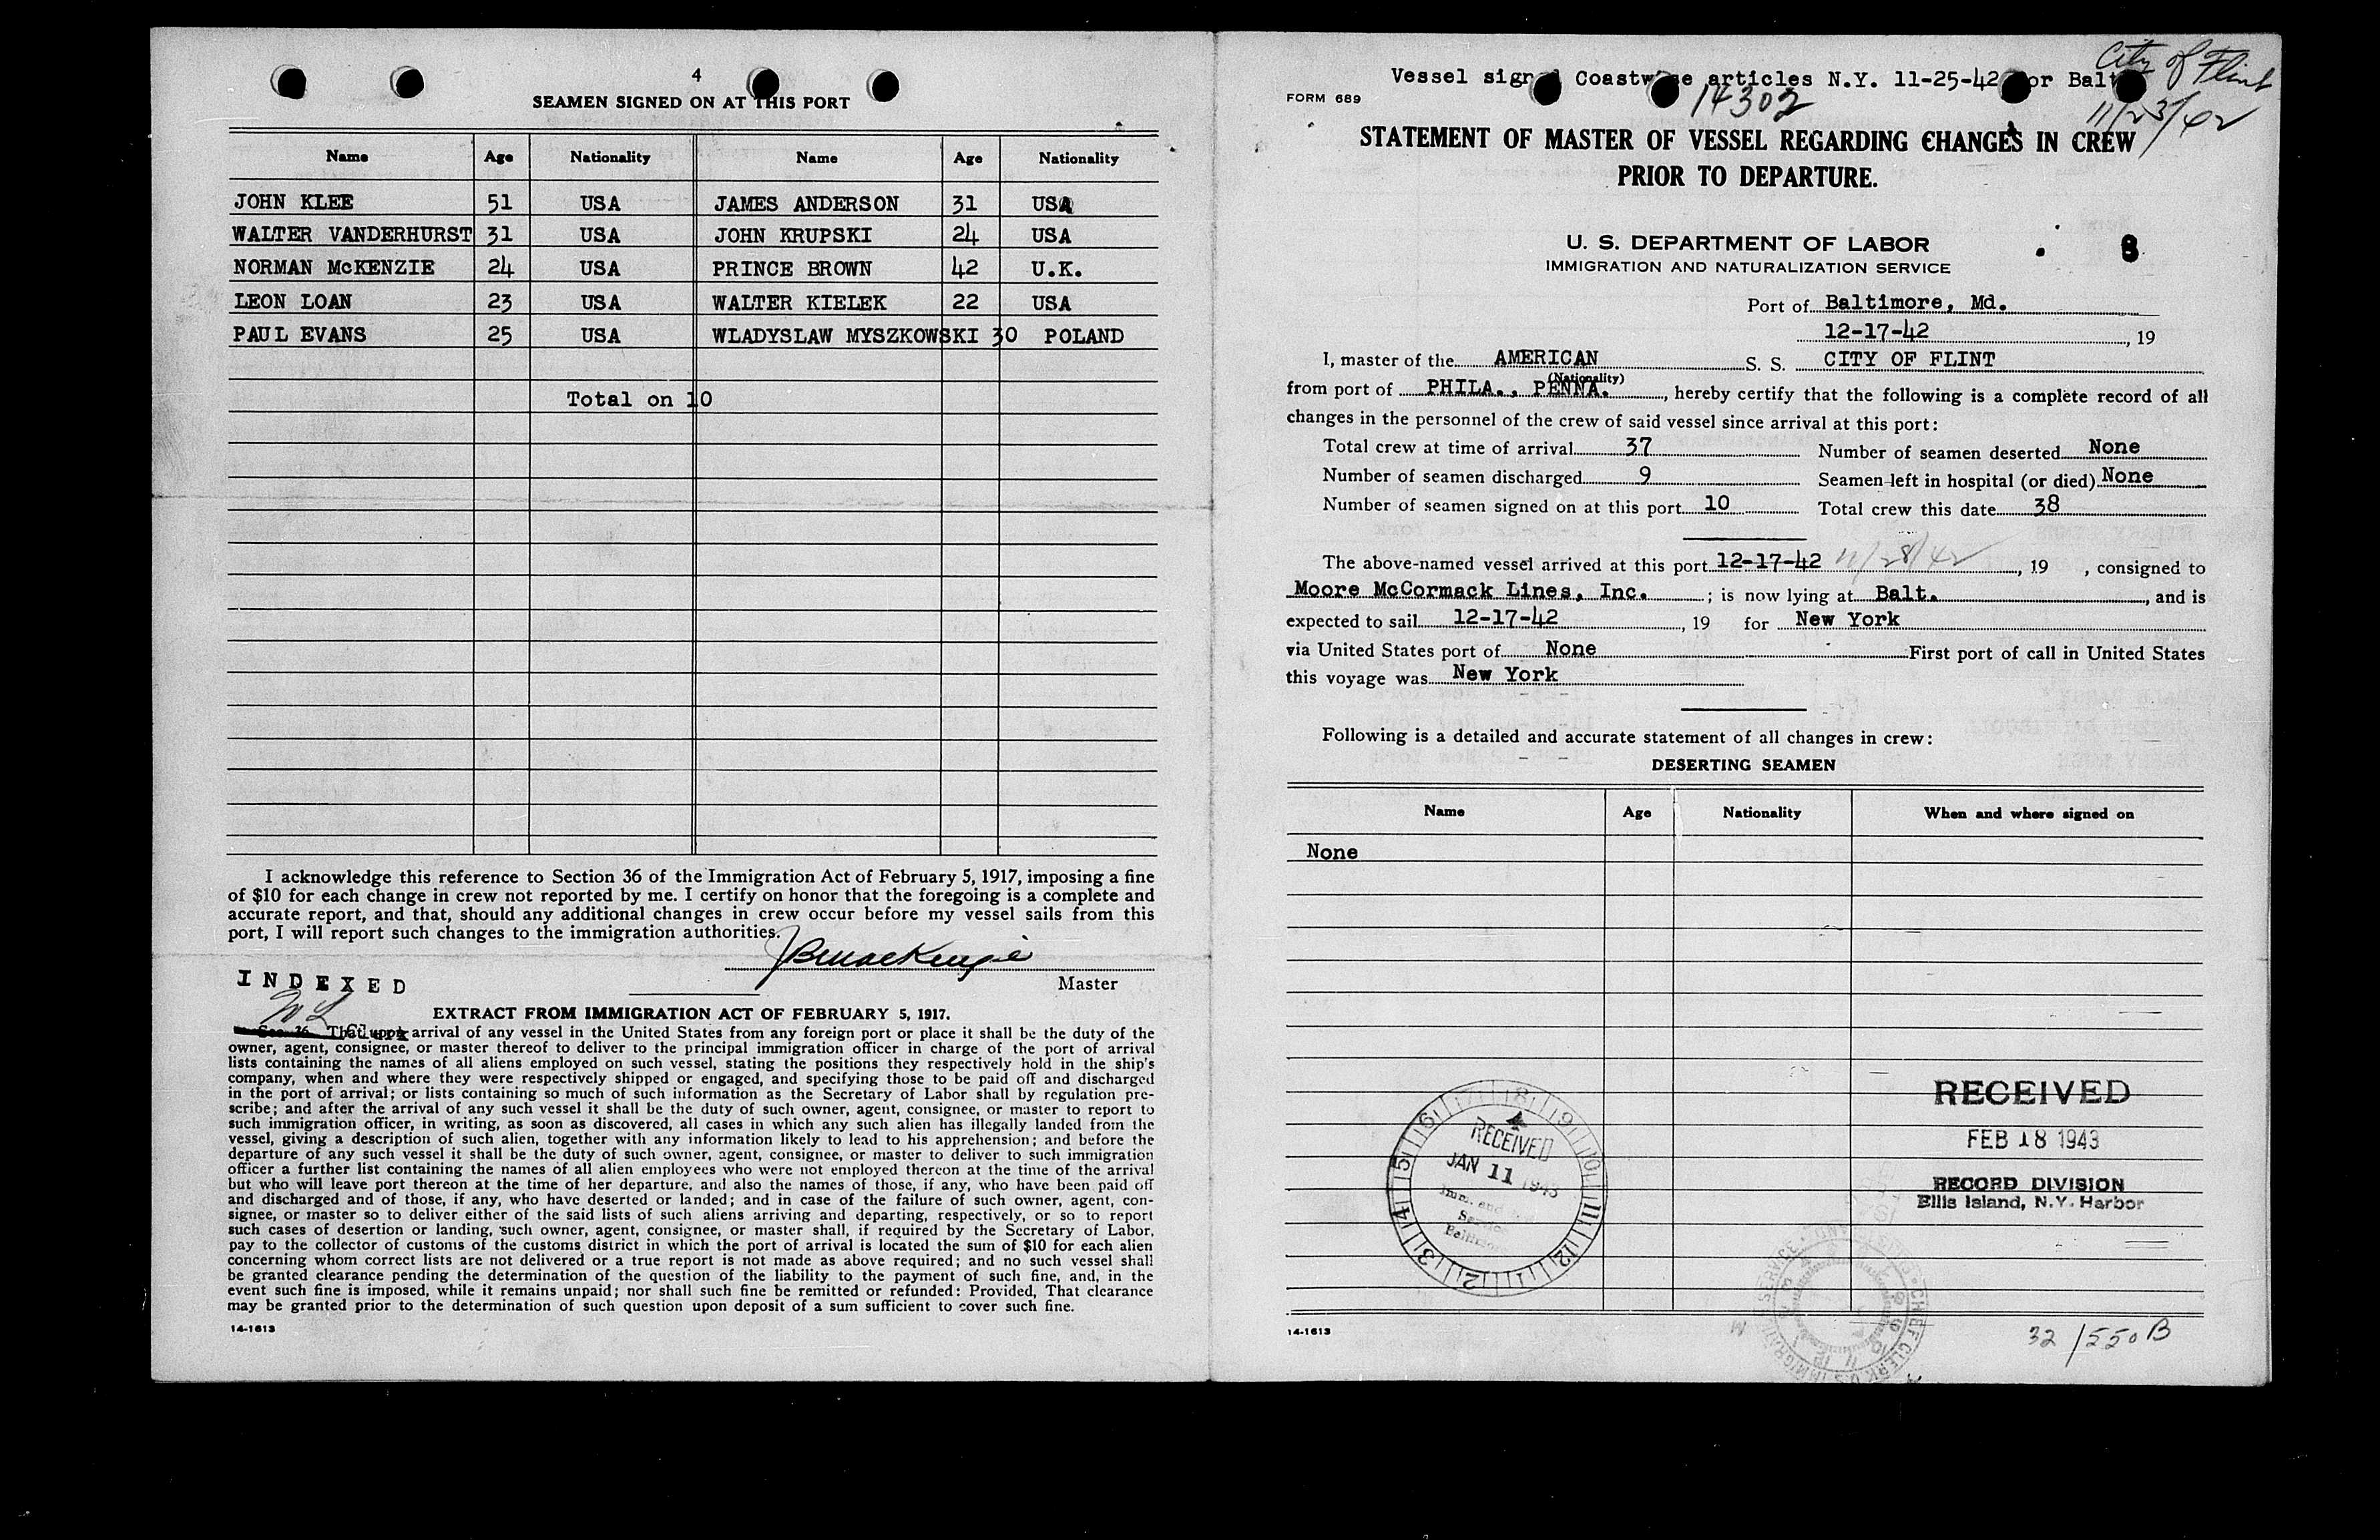 4
SEAMEN SIGNED ON AT THIS PORT
Name Age Nationality Name Age Nationality
JOHN KLEE 51 USA JAMES ANDERSON 31 USA
WALTER VANDERHURST 31 USA JOHN KRUPSKI 24 USA
NORMAN McKENZIE 24 USA PRINCE BROWN 42 U.K.
LEON LOAN 23 USA WALTER KIELEK 22 USA
PAUL EVANS 25 USA WLADYSLAW MYSZKOWSKI 30 POLAND
Total on 10
I acknowledge this reference to Section 36 of the Immigration Act of February 5, 1917, imposing a fine
of $10 for each change in crew not reported by me. I certify on honor that the foregoing is a complete and
accurate report, and that, should any additional changes in crew occur before my vessel sails from this
port, I will report such changes to the immigration authorities.
Master
INDEXED
EXTRACT FROM IMMIGRATION ACT OF FEBRUARY 5, 1917.
Sec. 36. That upon arrival of any vessel in the United States from any foreign port or place it shall be the duty of the
owner, agent, consignee, or master thereof to deliver to the principal immigration officer in charge of the port of arrival
lists containing the names of all aliens employed on such vessel, stating the positions they respectively hold in the ship's
company, when and where they were respectively shipped or engaged, and specifying those to be paid off and discharged
in the port of arrival; or lists containing so much of such information as the Secretary of Labor shall by regulation pre-
scribe; and after the arrival of any such vessel it shall be the duty of such owner, agent, consignee, or master to report to
such immigration officer, in writing, as soon as discovered, all cases in which any such alien has illegally landed from the
vessel, giving a description of such alien, together with any information likely to lead to his apprehension; and before the
departure of any such vessel it shall be the duty of such owner, agent, consignee, or master to deliver to such immigration
officer a further list containing the names of all alien employees who were not employed thereon at the time of the arrival
but who will leave port thereon at the time of her departure, and also the names of those, if any, who have been paid off
and discharged and of those, if any, who have deserted or landed; and in case of the failure of such owner, agent, con-
signee, or master so to deliver either of the said lists of such aliens arriving and departing, respectively, or so to report
such cases of desertion or landing, such owner, agent, consignee, or master shall, if required by the Secretary of Labor,
pay to the collector of customs of the customs district in which the port of arrival is located the sum of $10 for each alien
concerning whom correct lists are not delivered or a true report is not made as above required; and no such vessel shall
be granted clearance pending the determination of the question of the liability to the payment of such fine, and, in the
event such fine is imposed, while it remains unpaid; nor shall such fine be remitted or refunded: Provided, That clearance
may be granted prior to the determination of such question upon deposit of a sum sufficient to cover such fine.
14-1613
City of Flint
11/23/42
Vessel sign Coastwise articles N.Y. 11-25-42 for Balt
FORM 689
14302
STATEMENT OF MASTER OF VESSEL REGARDING CHANGES IN CREW
PRIOR TO DEPARTURE.
U. S. DEPARTMENT OF LABOR
IMMIGRATION AND NATURALIZATION SERVICE
Port of Baltimore, Md.
12-17-42, 19
I, master of the AMERICAN S. S. CITY OF FLINT
(Nationality)
from port of PHILA., PENNA., hereby certify that the following is a complete record of all
changes in the personnel of the crew of said vessel since arrival at this port:
Total crew at time of arrival 37 Number of seamen deserted None
Number of seamen discharged 9 Seamen left in hospital (or died) None
Number of seamen signed on at this port 10 Total crew this date 38
The above-named vessel arrived at this port 12-17-42 11/28/42, 19 , consigned to
Moore McCormack Lines, Inc. ; is now lying at Balt., and is
expected to sail 12-17-42, 19 for New York
via United States port of None First port of call in United States
this voyage was New York
Following is a detailed and accurate statement of all changes in crew:
DESERTING SEAMEN
Name Age Nationality When and where signed on
None
RECEIVED
JAN 11 1943
RECEIVED
FEB 18 1943
RECORD DIVISION
Ellis Island, N.Y. Harbor
32/550 B
14-1613